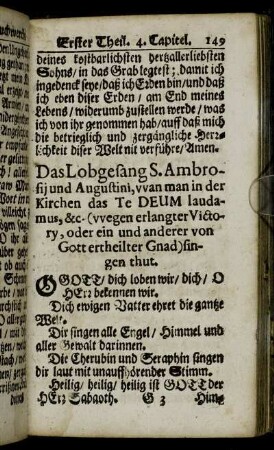 Erster Theil. 4. Capitel. 149
deines kostbarlichsten hertzallerliebsten
Sohns/ in das Grab legtest; damit ich
ingedenck seye/ daß ich Erden bin/ und daß
ich eben diser Erden / am End meines
Lebens/ widerumb zustellen werde / was
ich von ihr genommen hab/ auff daß mich
die betrieglich und zergängliche Herr-
lichkeit diser Welt nit verführe/ Amen.
Das Lobgesang S. Ambro-
sij und Augustini, vvan man in der
Kirchen das Te DEUM lauda-
mus, &c- (vvegen erlangter Victo-
ry, oder ein und anderer von
Gott ertheilter Gnad) sin-
gen thut.
O GOTT/ dich loben wir/ dich/ O
HErr bekennen wir.
Dich ewigen Vatter ehret die gantze
Welt.
Dir singen alle Engel/ Himmel und
aller Gewalt darinnen.
Die Cherubin und Seraphin singen
dir laut mit unauffhörender Stimm.
Heilig/ heilig/ heilig ist GOTT der
HErr Sabaoth. G 3 Him-